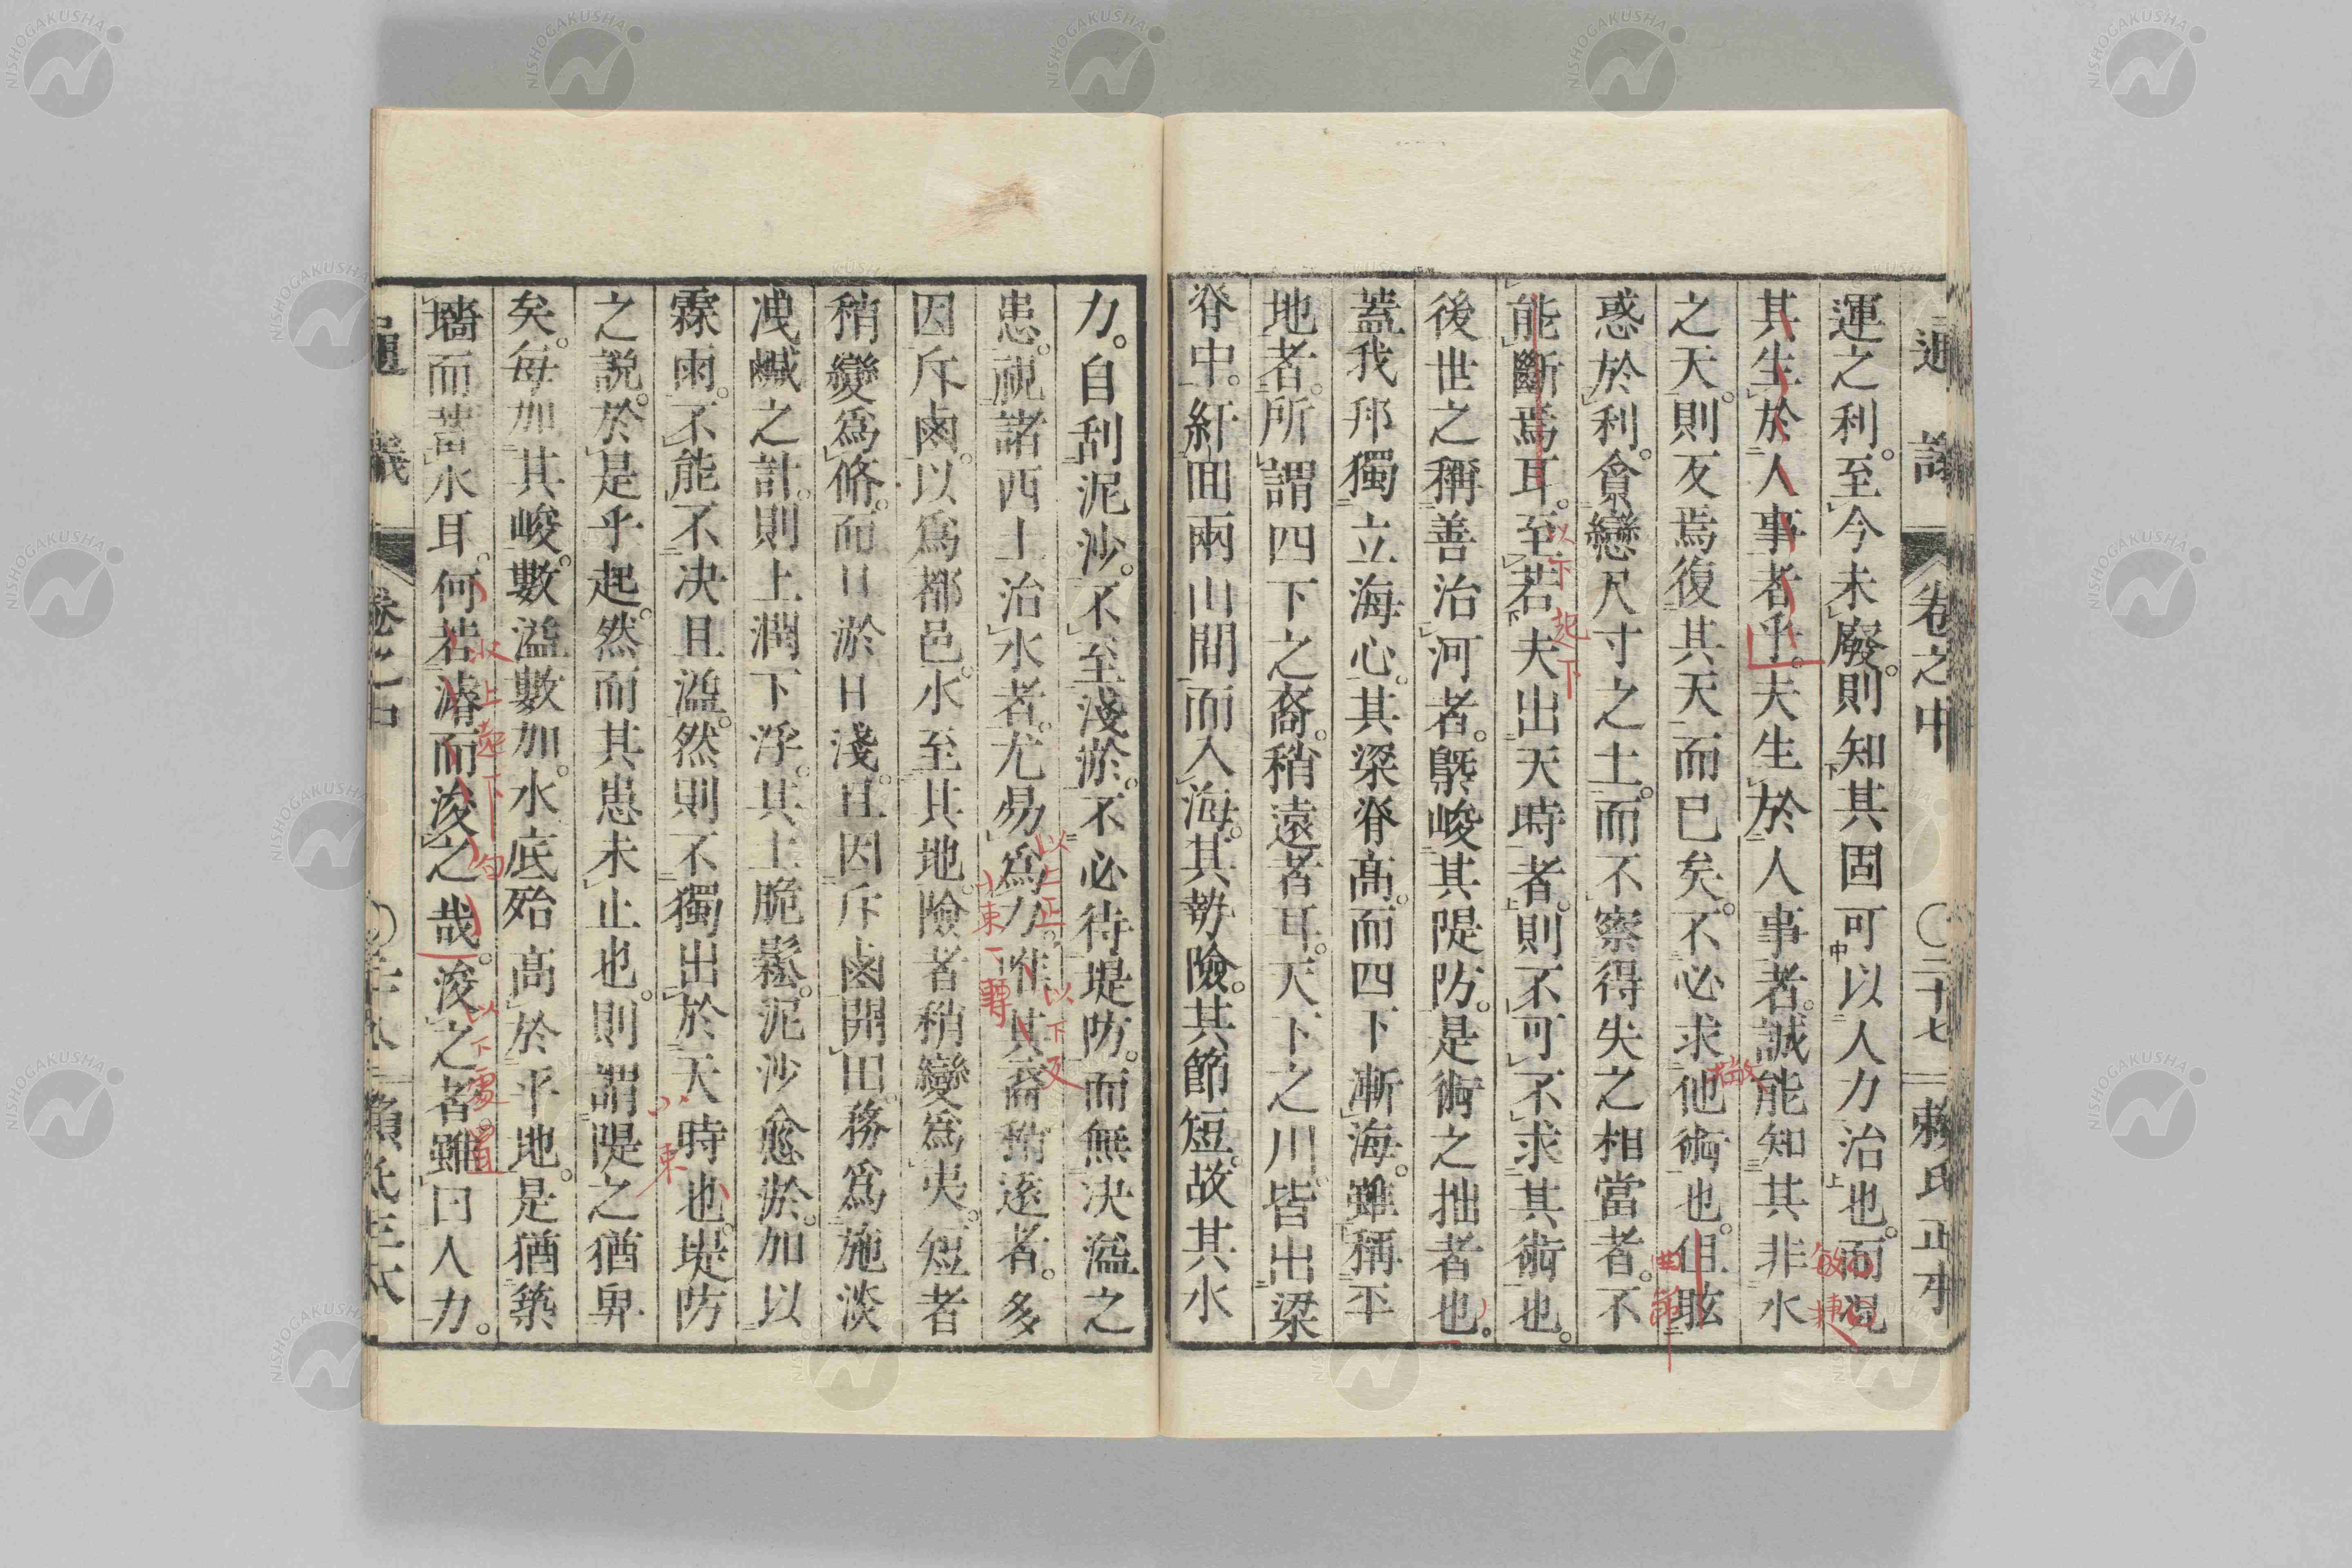 通議
卷之中
二十七
賴氏正本
運之利。至今未廢。則知其固可以人力治也。而況
其生於人事者乎。夫生於人事者。誠能知其非水
之天。則反焉復其天而已矣。不必求他術也。但眩
惑於利。貪戀尺寸之土。而不察得失之相當者。不
能斷焉耳。至若夫出天時者。則不可不求其術也。
後世之稱善治河者。繫峻其隄防。是術之拙者也。
蓋我邦獨立海心。其梁脊高。而四下漸海。雖稱平
地者。所謂四下之裔。稍遠者耳。天下之川。皆出梁
脊中。紆回兩山間而入海。其勢險。其節短。故其水
力。自刮泥沙。不至淺淤。不必待堤防。而無決溢之
患。視諸西土治水者。尤易爲力。惟其裔稍遠者。多
因斥鹵。以爲都邑。水至其地。險者稍變爲夷。短者
稍變爲脩。而日淤日淺。且因斥鹵開田。務爲施淡
洩鹹之計。則上潤下浮。其土脆鬆。泥沙愈淤。加以
霖雨。不能不決且溢。然則不獨出於天時也。堤防
之說。於是乎起。然而其患未止也。則謂隄之猶卑
矣。每加其峻。數溢數加。水底殆高於平地。是猶築
墻而蓄水耳。何若濬而浚之哉。浚之者。雖曰人力。
以下起下
以上正
以下反
收上起下句
以下處置
NISHOGAKUSHA